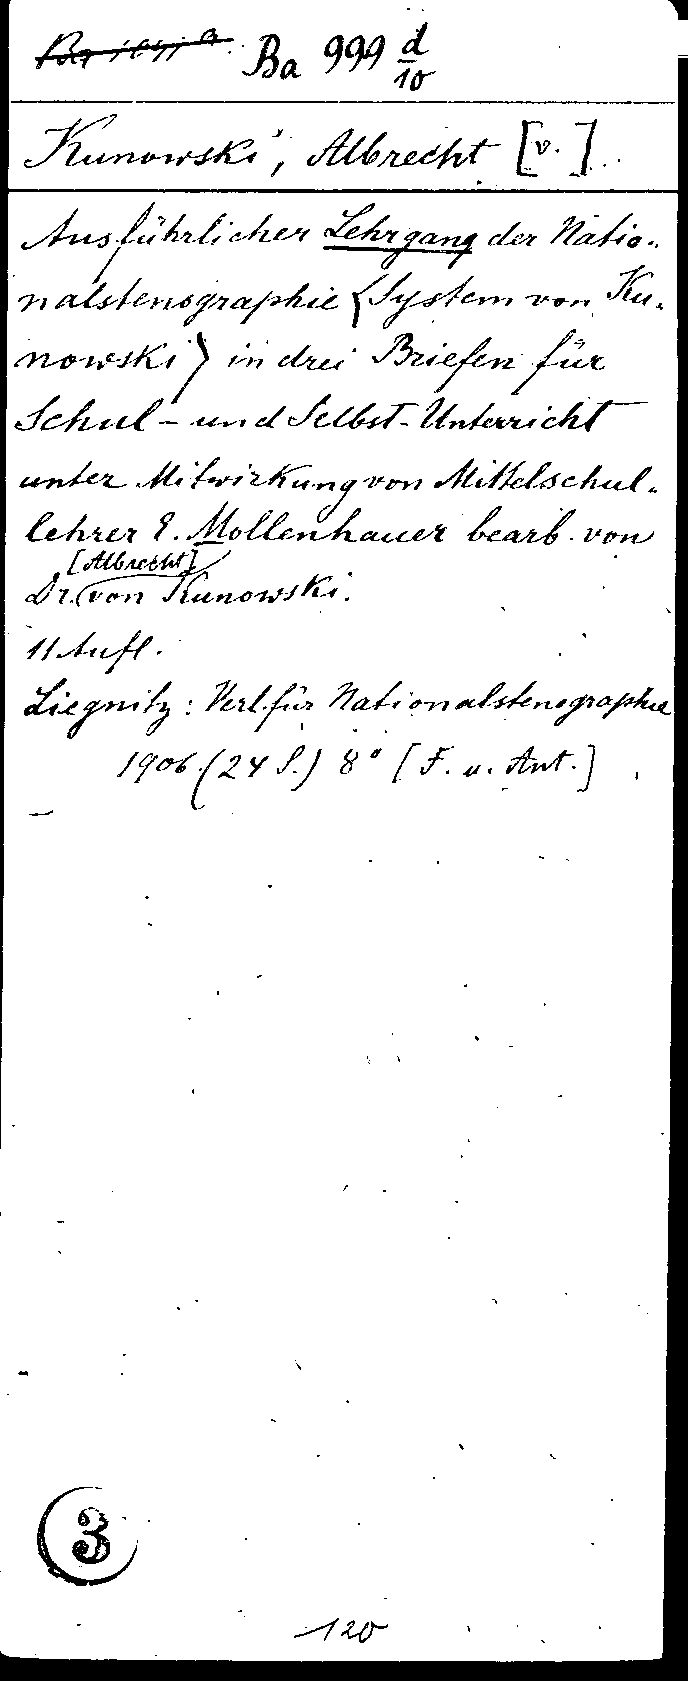 Ba 999 d/10
Kunowski, Albrecht [v.]
Ausführlicher Lehrgang der Natio-
nalstenographie (System von Ku-
nowski) in drei Briefen für
Schul- und Selbst-Unterricht
unter Mitwirkung von Mittelschul-
lehrer E. Mollenhauer bearb. von
[Albrecht]
Dr. von Kunowski.
11 Aufl.
Liegnitz: Verl. für Nationalstenographie
1906. (24 S.) 8° [F. u. Ant.]
3
120